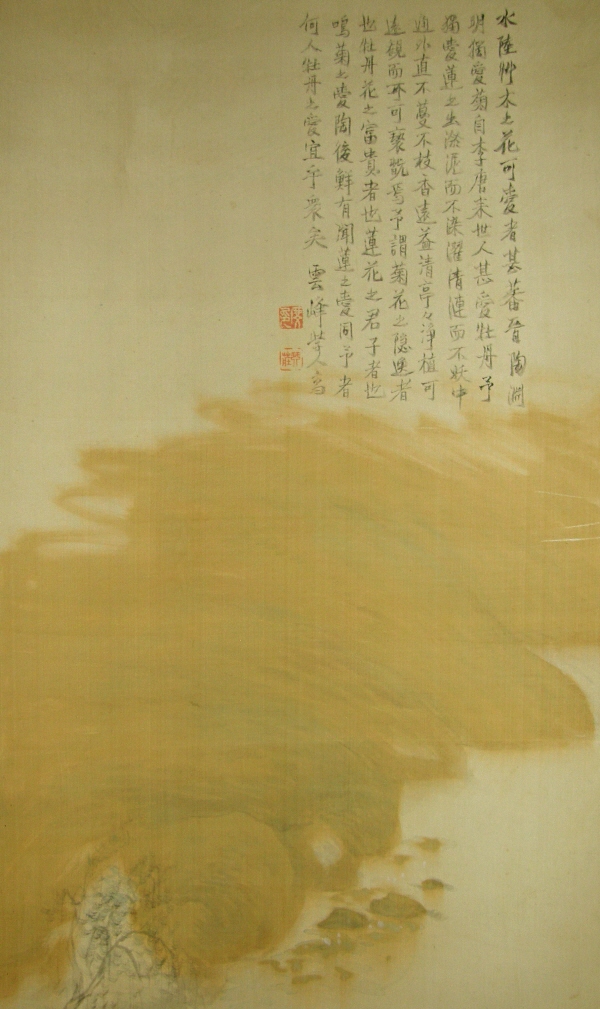 水陸艸木之花可愛者甚蕃晉陶淵
明獨愛菊自李唐来世人甚愛牡丹予
獨愛蓮之出淤泥而不染濯清漣而不妖中
通外直不蔓不枝香遠益清亭々淨植可
遠觀而不可褻翫焉予謂菊花之隠逸者
也牡丹花之富貴者也蓮花之君子者也
噫菊之愛陶後鮮有聞蓮之愛同予者
何人牡丹之愛宜乎衆矣 雲峰學人寫